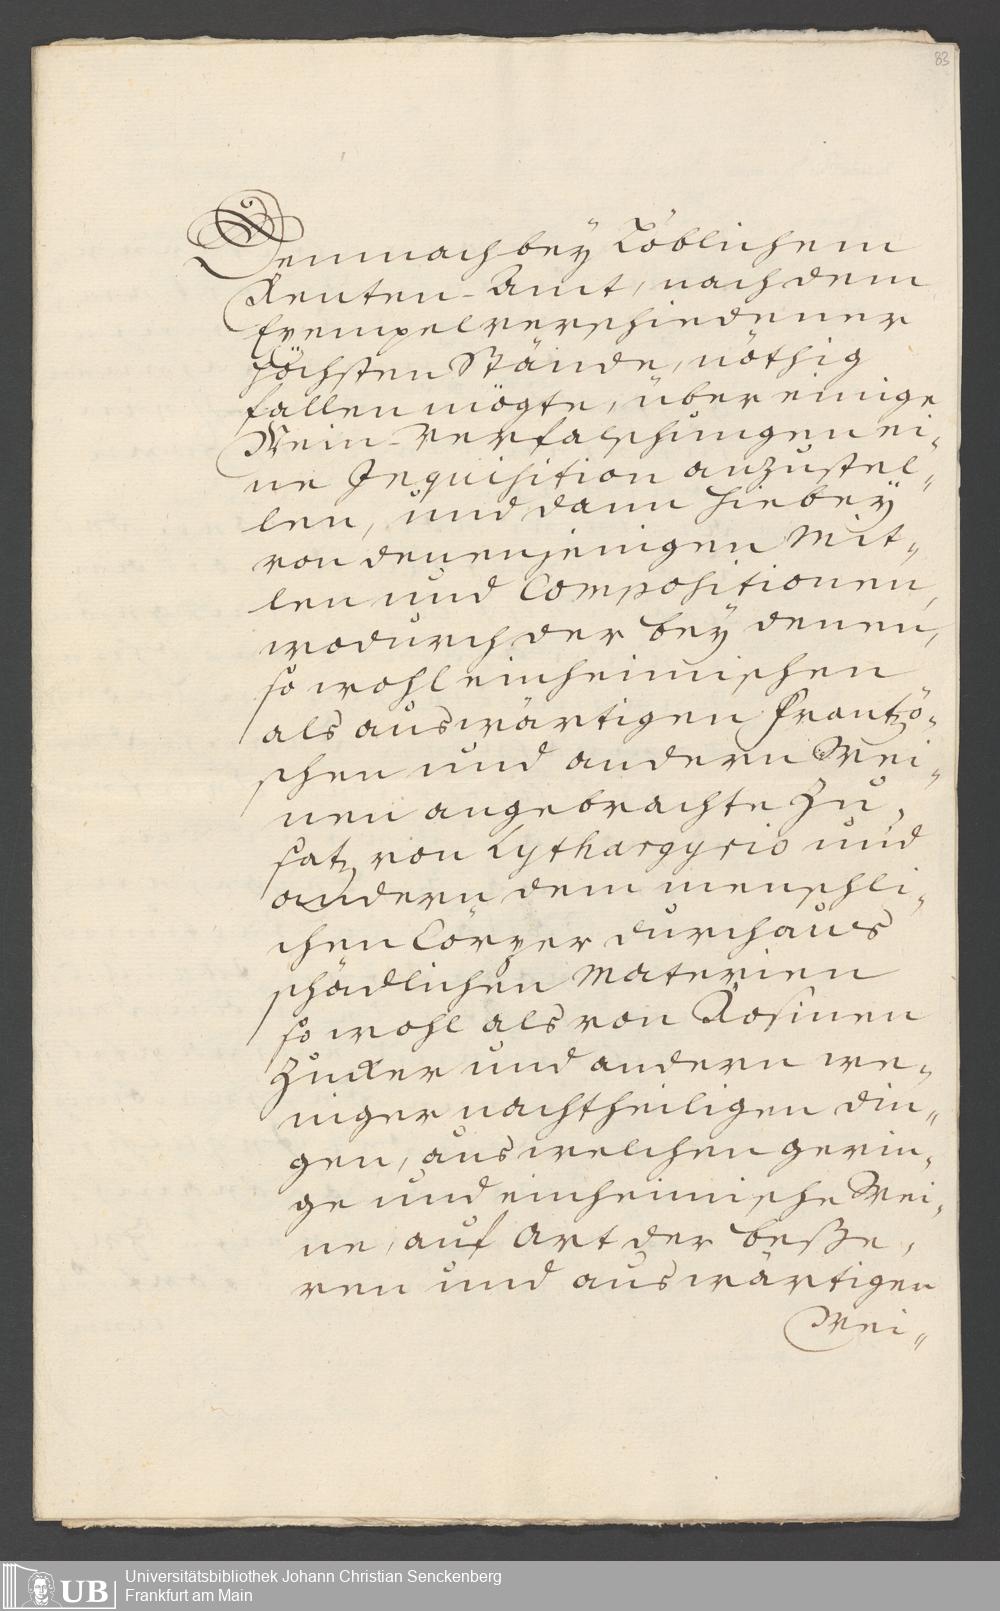 83
Demnach bey Löblichem
Renten-Amt, nach dem
Exempel verschiedener
höchsten Stände, nöthig
fallen mögte, über einige
Wein-Verfalschungen ei„
ne Inquisition anzustel„
len, und dann hiebey
von denenjenigen Mit„
len und Compositionen,
wodurch der bey denen,
so wohl einheimischen
als auswärtigen Frantzö„
schen und andern Wei„
nen angebrachte Zu„
satz von Lythargyrio und
andern dem menschli„
chen Cörper durchaus
schädlichen Materien
so wohl als von Rosinen
Zucker und andern we„
niger nachtheiligen din„
gen, aus welchen gerin„
ge und einheimische Wei„
ne, auf Art der beße„
ren und auswärtigen
Wei„
UB
Universitätsbibliothek Johann Christian Senckenberg
Frankfurt am Main